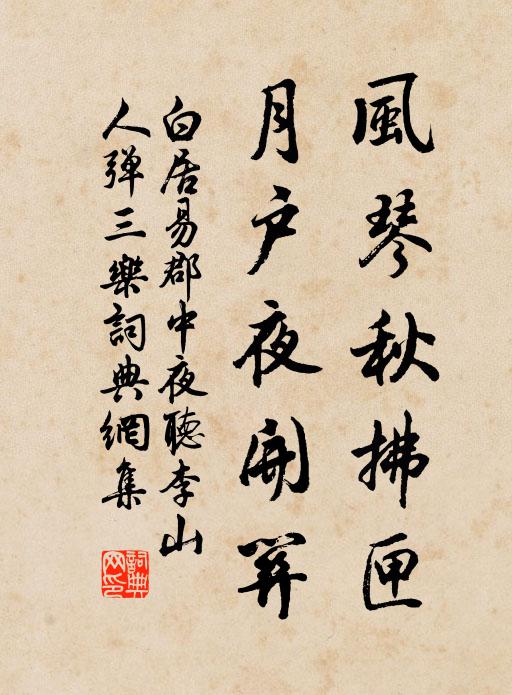 風琴秋拂匣
月户夜開關
白居易郡中夜聽李山
人弹三樂詞典網集
詞典
网印